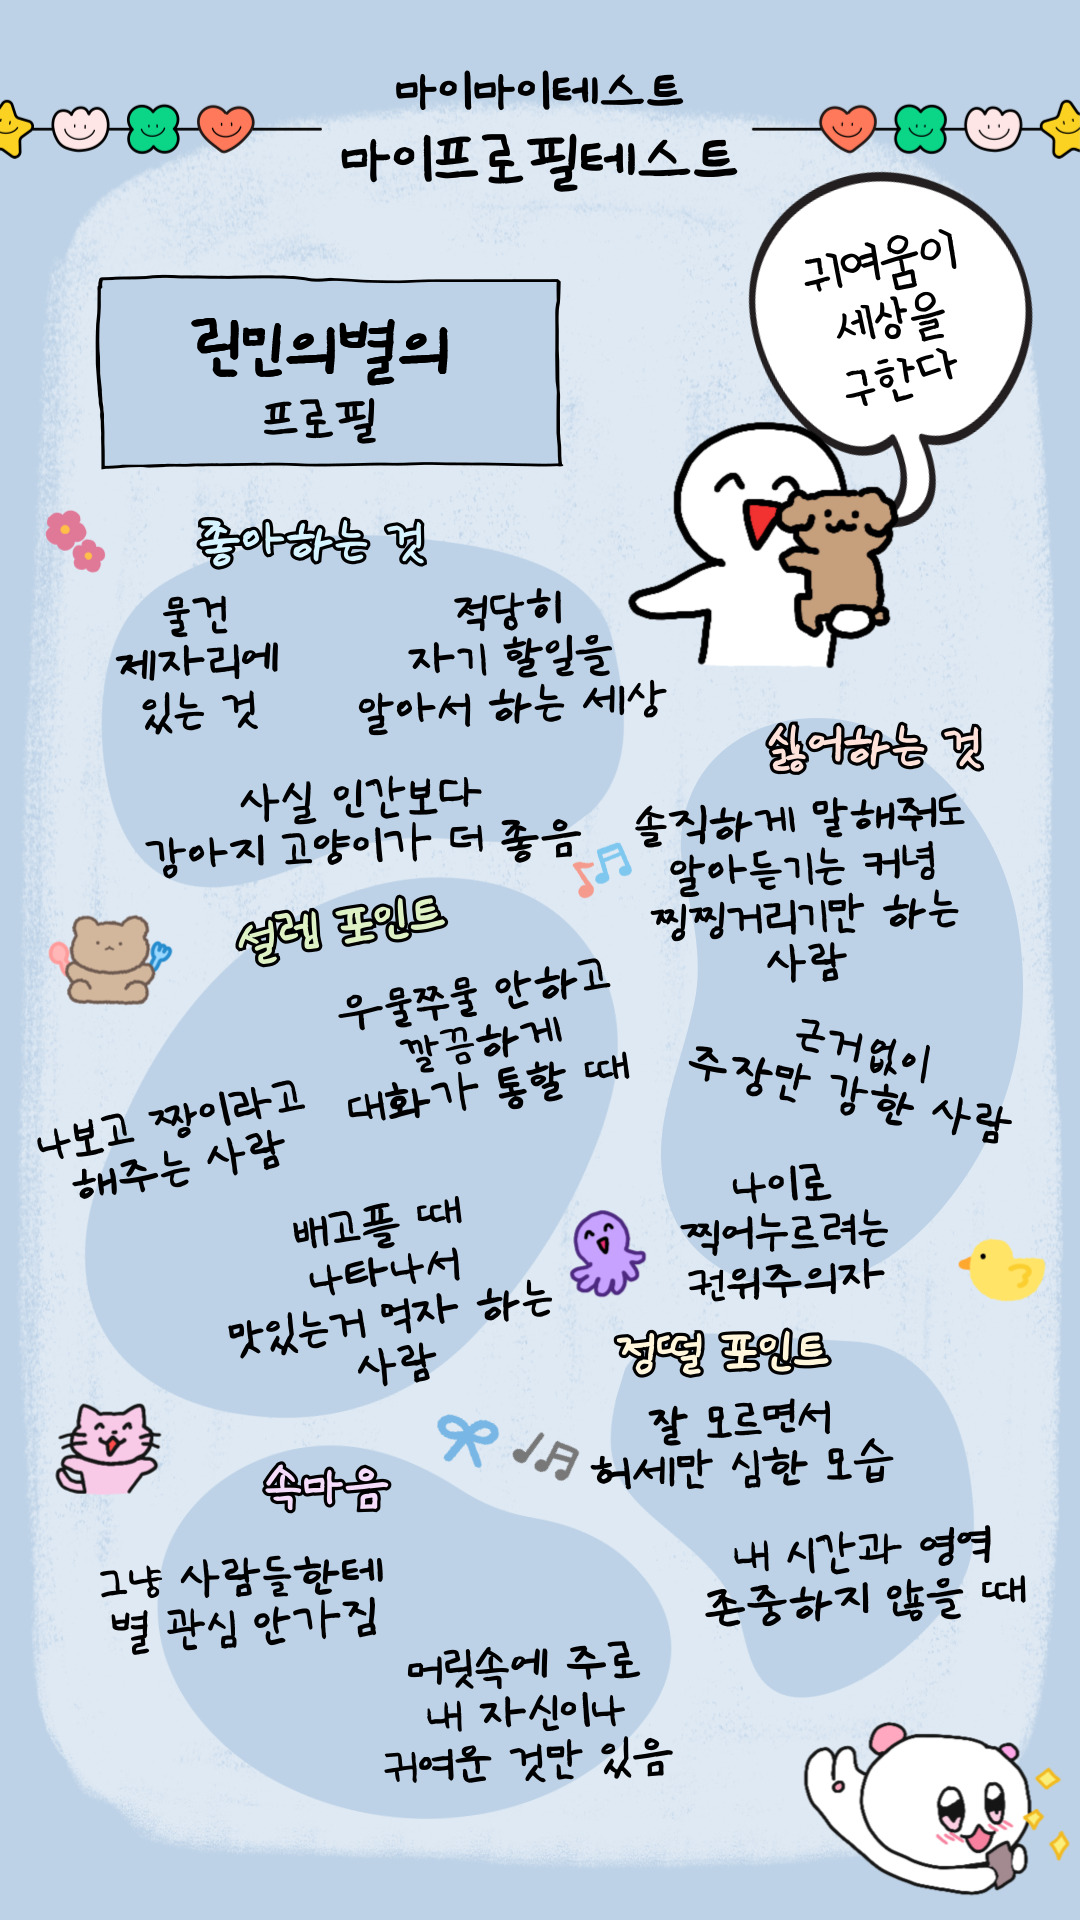 마이마이테스트
마이프로필테스트
귀여움이
세상을
구한다
린민의별의
프로필
좋아하는 것
물건
제자리에
있는 것
적당히
자기 할일을
알아서 하는 세상
사실 인간보다
강아지 고양이가 더 좋음
싫어하는 것
솔직하게 말해줘도
알아듣기는 커녕
찡찡거리기만 하는
사람
근거없이
주장만 강한 사람
나이로
찍어누르려는
권위주의자
설렘 포인트
우물쭈물 안하고
깔끔하게
대화가 통할 때
나보고 짱이라고
해주는 사람
배고플 때
나타나서
맛있는거 먹자 하는
사람
정떨 포인트
잘 모르면서
허세만 심한 모습
내 시간과 영역
존중하지 않을 때
속마음
그냥 사람들한테
별 관심 안가짐
머릿속에 주로
내 자신이나
귀여운 것만 있음